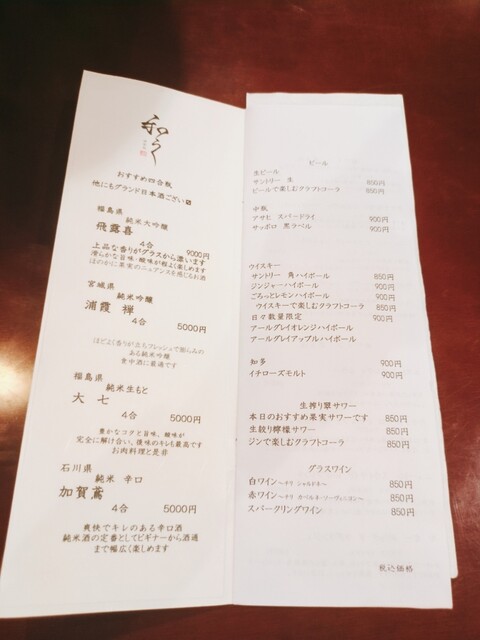 和らく
おすすめ四合瓶
他にもグランド日本酒ござい〼
福島県
純米大吟醸
飛露喜
4合 9000円
上品な香りがグラスから漂います
滑らかな旨味・酸味が程よく楽しめます
ほのかに果実のニュアンスを感じるお酒
宮城県
純米吟醸
浦霞 禅
4合 5000円
ほどよく香りが立ちフレッシュで膨らみの
ある純米吟醸
食中酒に最適です
福島県
純米生もと
大 七
4合 5000円
豊かなコクと旨味、酸味が
完全に解け合い、後味のキレも最高です
お肉料理と是非
石川県
純米 辛口
加賀鳶
4合 5000円
爽快でキレのある辛口酒
純米酒の定番としてビギナーから酒通
まで幅広く楽しめます
ビール
生ビール
サントリー 生 850円
ビールで楽しむクラフトコーラ 850円
中瓶
アサヒ スパードライ 900円
サッポロ 黒ラベル 900円
ウイスキー
サントリー 角ハイボール 850円
ジンジャーハイボール 900円
ごろっとレモンハイボール 900円
ウイスキーで楽しむクラフトコーラ 850円
日々数量限定 900円
アールグレイオレンジハイボール
アールグレイアップルハイボール
知多 900円
イチローズモルト 900円
生搾り翠サワー
本日のおすすめ果実サワーです 850円
生絞り檸檬サワー 850円
ジンで楽しむクラフトコーラ 850円
グラスワイン
白ワイン～チリ シャルドネ～ 850円
赤ワイン～チリ カベルネ・ソーヴィニヨン～ 850円
スパークリングワイン 850円
税込価格